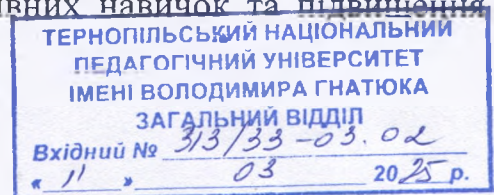 ивних навичок та підвищення
ТЕРНОПІЛЬСЬКИЙ НАЦІОНАЛЬНИЙ
ПЕДАГОГІЧНИЙ УНІВЕРСИТЕТ
ІМЕНІ ВОЛОДИМИРА ГНАТЮКА
ЗАГАЛЬНИЙ ВІДДІЛ
Вхідний № 313/33-03.02
« 11 » 03 2025 р.